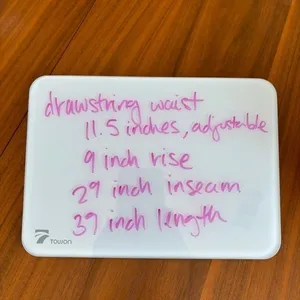 drawstring waist
11.5 inches, adjustable
9 inch rise
29 inch inseam
39 inch length
Towon